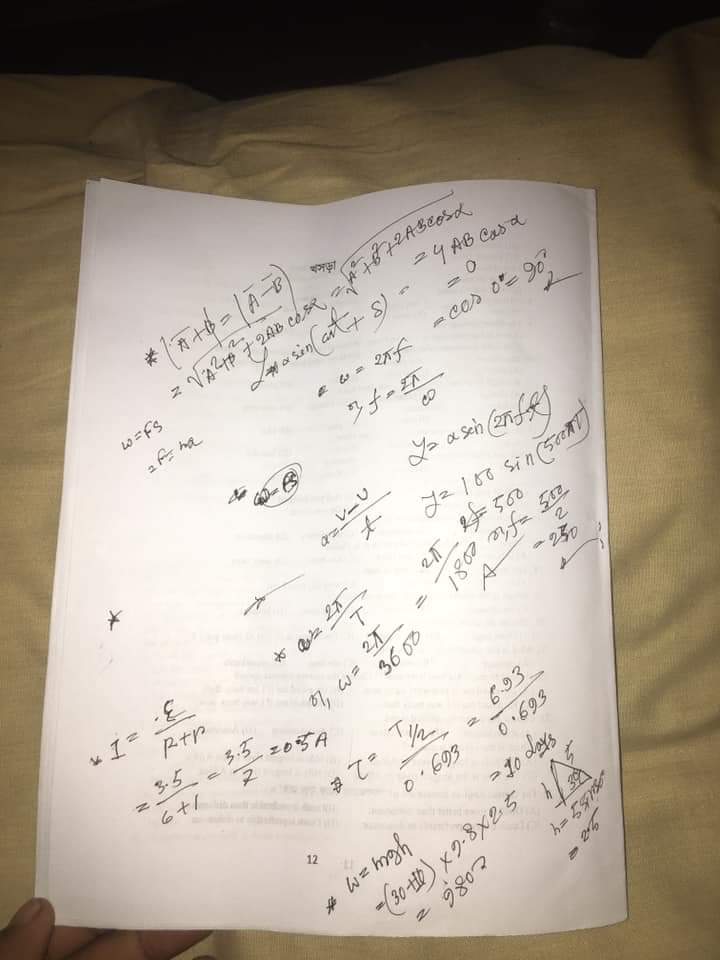 খসড়া
* |A̅+B̅| = |A̅-B̅|
= √A²+B²+2AB cosα = √A²+B²+2ABcosα
= 4AB cosα
= 0
= cos 0° = 90°
y = a sin(ωt + δ)
ω = 2πf
f = 2π/ω
W = FS
F = ma
a = v-u/t
y = a sin(2πft)
y = 100 sin(500πt)
2f = 500
f = 500/2
= 250
* ω = 2π/T
ω = 2π/3600 = 2π/1800
* I = E/R+r
= 3.5/6+1 = 3.5/7 = 0.5A
* τ = T 1/2/0.693 = 6.93/0.693
= 10 days
* W = mgh
= (30+10) × 9.8 × 2.5
= 980
h
5
30
h = 5 sin30
= 2.5
12